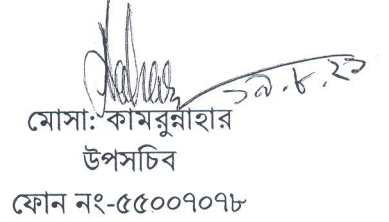 ১৯.৮.২১
মোসা: কামরুন্নাহার
উপসচিব
ফোন নং-৫৫০০৭০৭৮